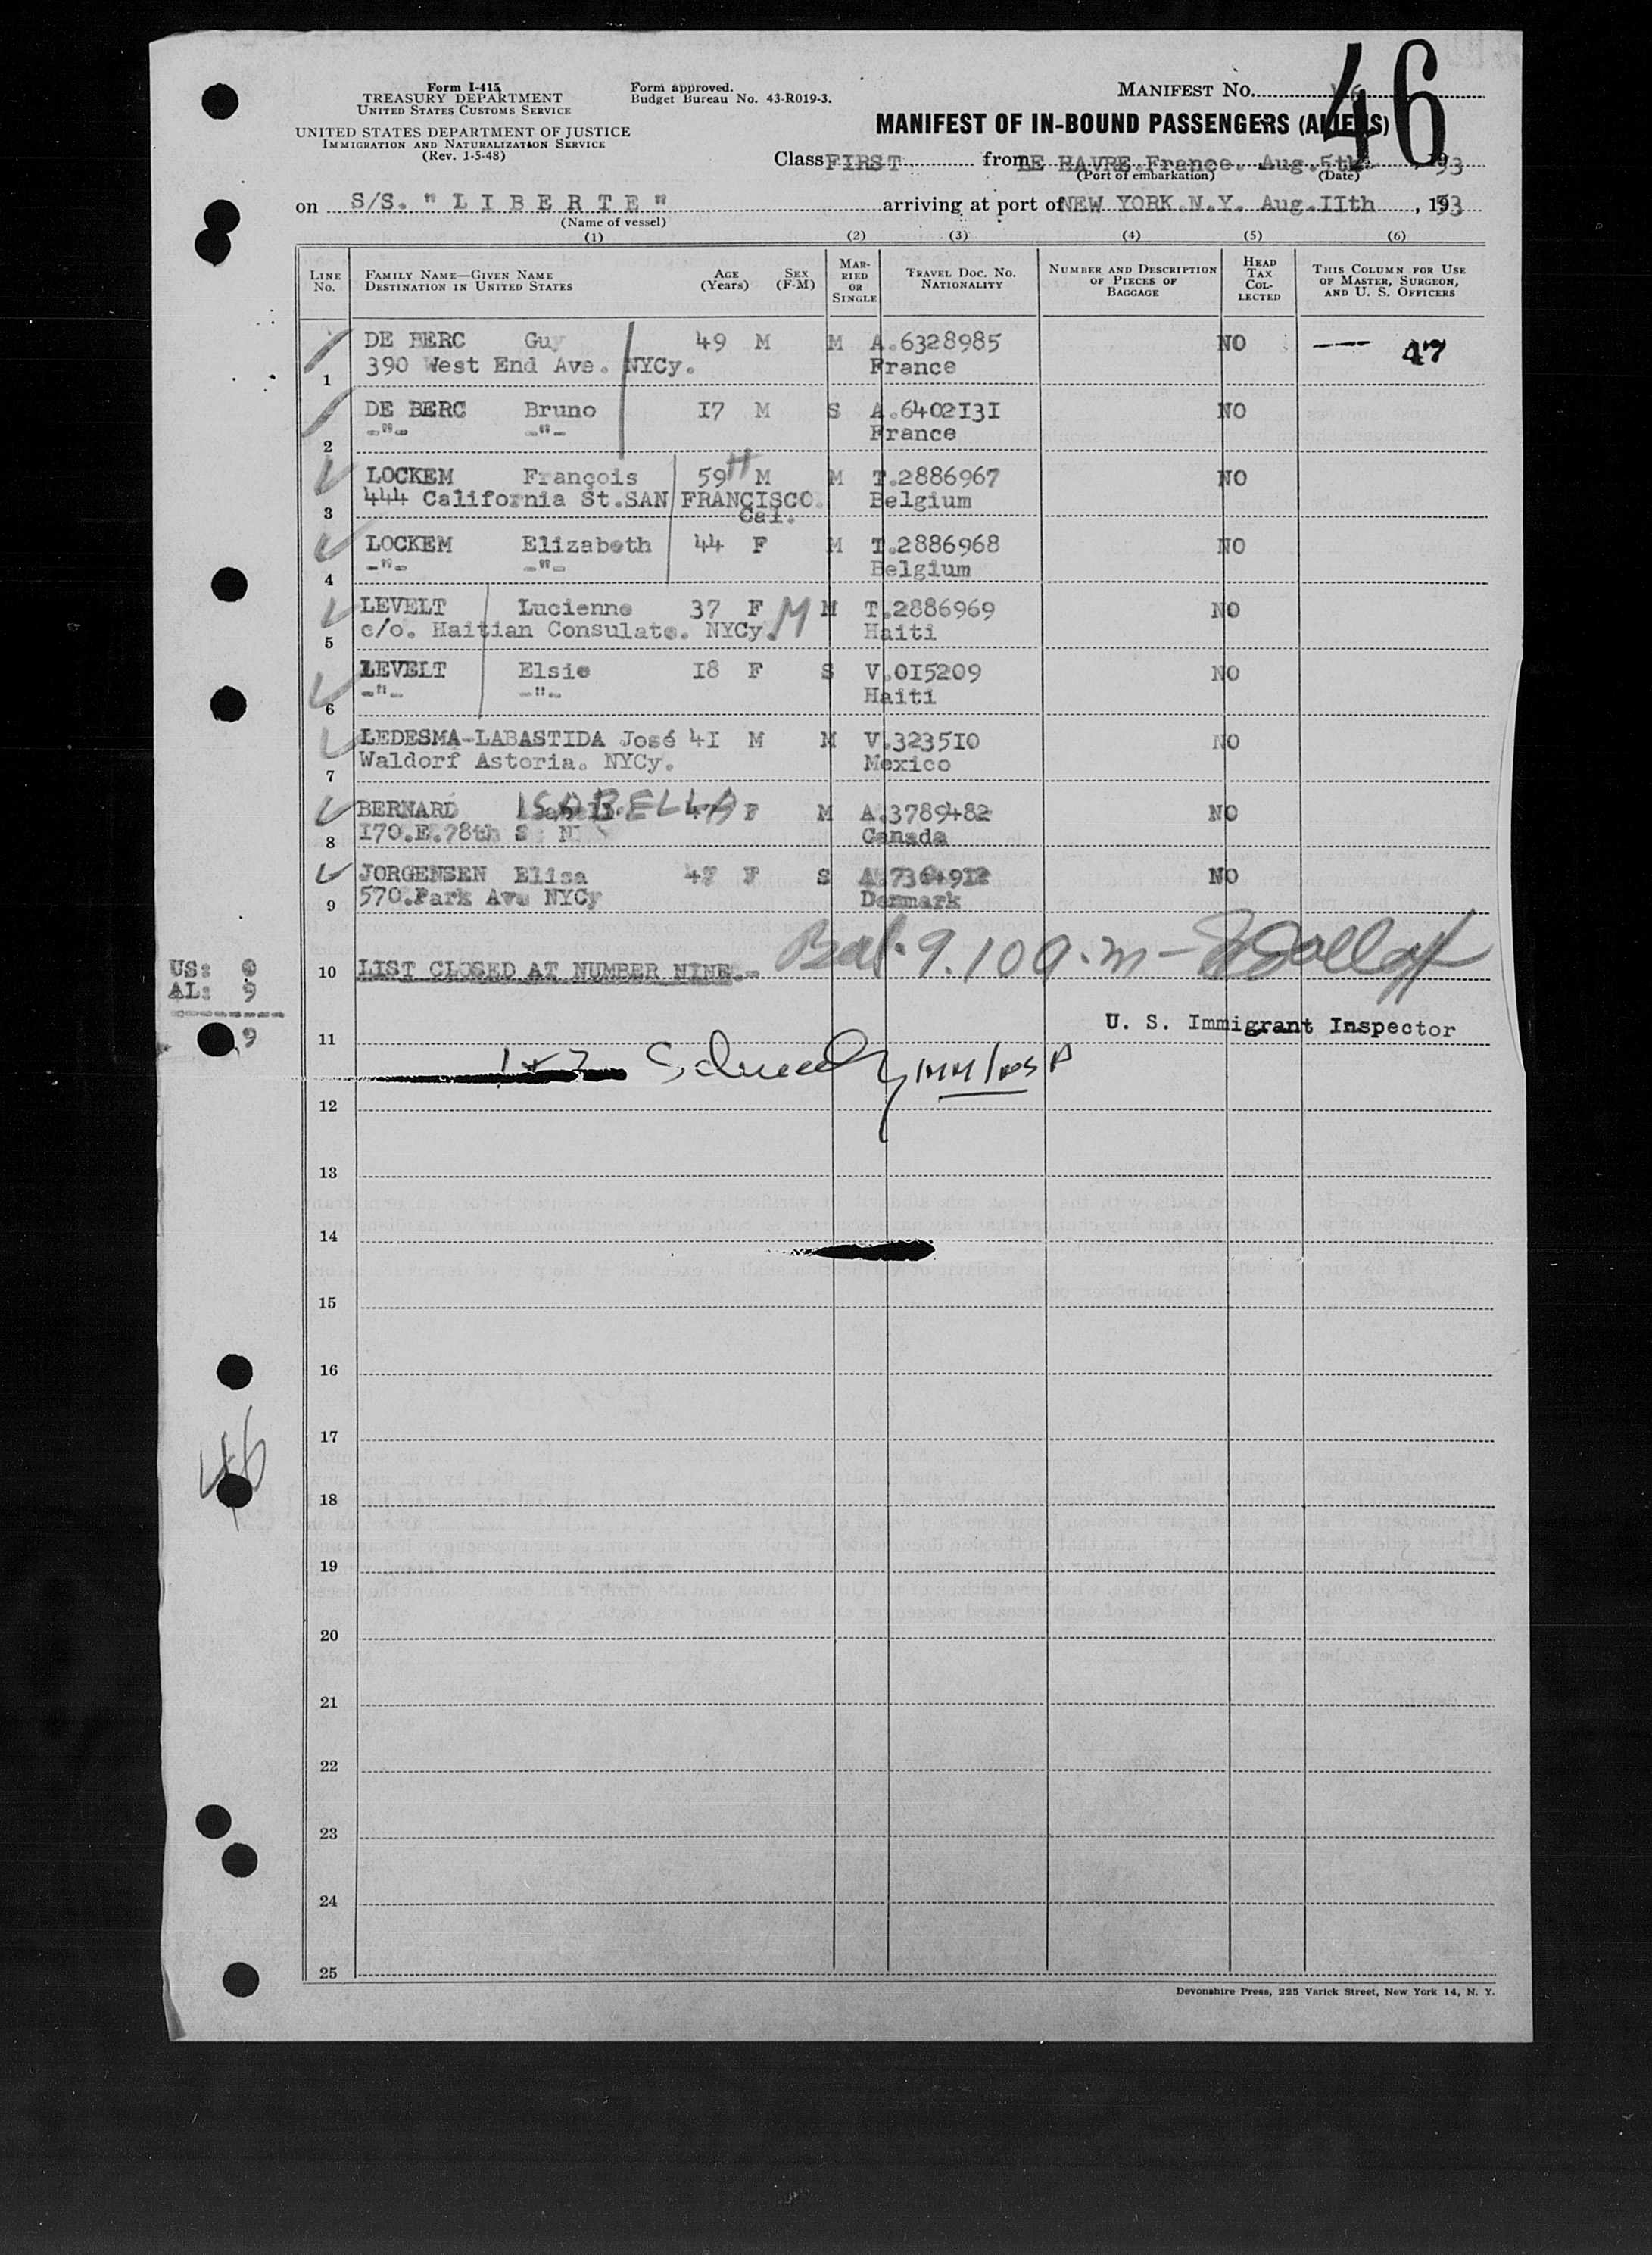 Form I-415
TREASURY DEPARTMENT
UNITED STATES CUSTOMS SERVICE
UNITED STATES DEPARTMENT OF JUSTICE
IMMIGRATION AND NATURALIZATION SERVICE
(Rev. 1-5-48)
Form approved.
Budget Bureau No. 43-R019-3.
MANIFEST NO.
46
MANIFEST OF IN-BOUND PASSENGERS (ALIENS)
Class FIRST from LE HAVRE.France. Aug.5th , 1953
(Port of embarkation) (Date)
on S/S. "LIBERTE" arriving at port of NEW YORK.N.Y. Aug.IIth , 1953
(Name of vessel)
(1) (2) (3) (4) (5) (6)
LINE NO. FAMILY NAME—GIVEN NAME DESTINATION IN UNITED STATES AGE (Years) SEX (F-M) MARRIED OR SINGLE TRAVEL DOC. NO. NATIONALITY NUMBER AND DESCRIPTION OF PIECES OF BAGGAGE HEAD TAX COLLECTED THIS COLUMN FOR USE OF MASTER, SURGEON, AND U. S. OFFICERS
DE BERC Guy 49 M M A.6328985 NO — 47
1 390 West End Ave. NYCy. France
DE BERC Bruno I7 M S A.6402I3I NO
2 -"- -"- France
LOCKEM François 59 M M T.2886967 NO
3 444 California St.SAN FRANCISCO. Cal. Belgium
LOCKEM Elizabeth 44 F M T.2886968 NO
4 -"- -"- Belgium
LEVELT Lucienne 37 F M M T.2886969 NO
5 c/o. Haitian Consulate. NYCy. Haiti
LEVELT Elsie I8 F S V.0I5209 NO
6 -"- -"- Haiti
LEDESMA-LABASTIDA José 4I M M V.3235I0 NO
7 Waldorf Astoria. NYCy. Mexico
BERNARD ISABELLA 47 F M A.3789482 NO
8 I70.E.78th Canada
JORGENSEN Elisa F S NO
9 570.Park Ave NYCy Denmark
10 LIST CLOSED AT NUMBER NINE.- 9.10 a.m -
US: 0
AL: 9
9
U. S. Immigrant Inspector
11
12
13
14
15
16
17
46
18
19
20
21
22
23
24
25
Devonshire Press, 225 Varick Street, New York 14, N. Y.